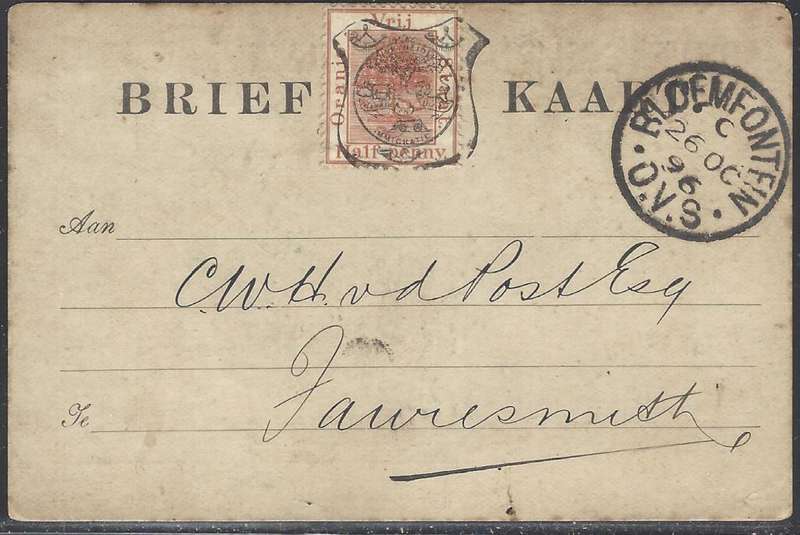 Vrij
Oranje
Half-penny.
BRIEF KAART
BLOEMFONTEIN
C
26 OC
96
O.V.S.
Aan
C.W.H. v d Post Esq
Te
Fauresmith